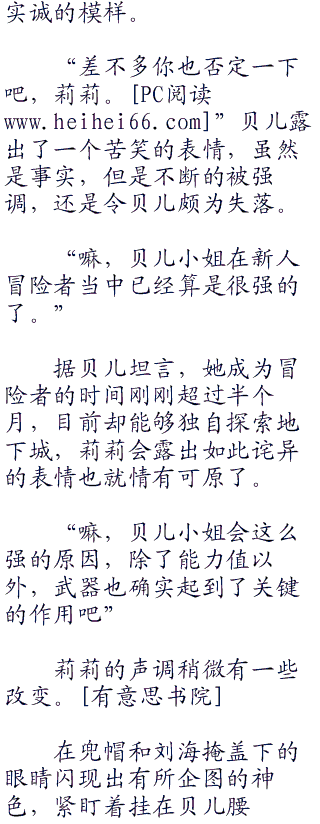 实诚的模样。
“差不多你也否定一下
吧，莉莉。[PC阅读
www.heihei66.com]”贝儿露
出了一个苦笑的表情，虽然
是事实，但是不断的被强
调，还是令贝儿颇为失落。
“嘛，贝儿小姐在新人
冒险者当中已经算是很强的
了。”
据贝儿坦言，她成为冒
险者的时间刚刚超过半个
月，目前却能够独自探索地
下城，莉莉会露出如此诧异
的表情也就情有可原了。
“嘛，贝儿小姐会这么
强的原因，除了能力值以
外，武器也确实起到了关键
的作用吧”
莉莉的声调稍微有一些
改变。[有意思书院]
在兜帽和刘海掩盖下的
眼睛闪现出有所企图的神
色，紧盯着挂在贝儿腰